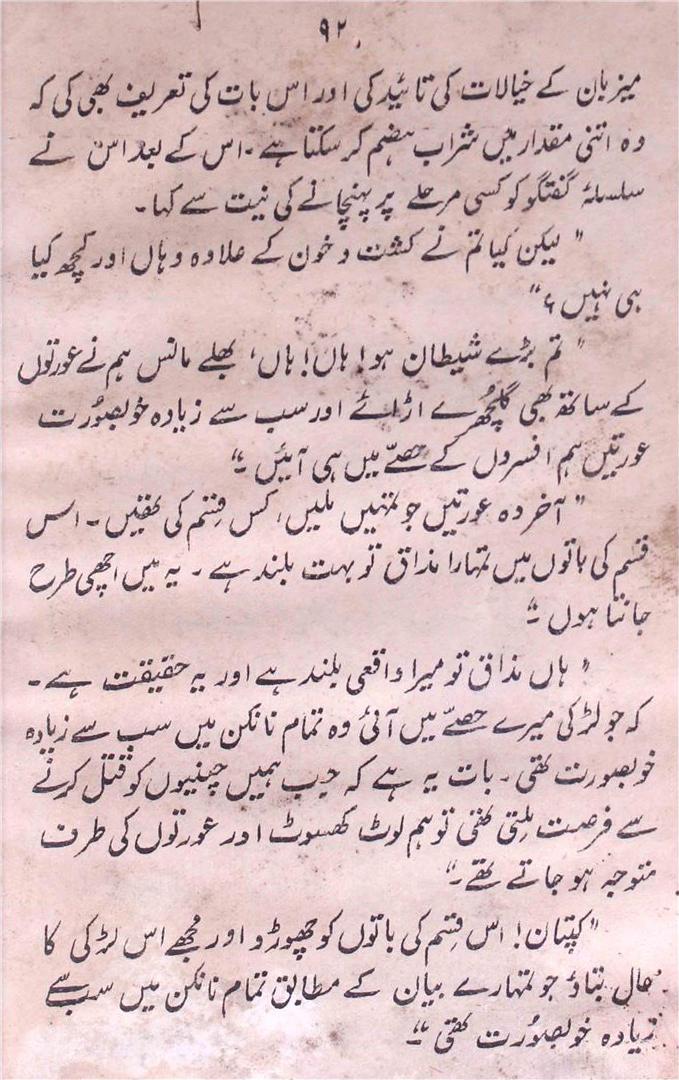 ۹۲
میزبان کے خیالات کی تائید کی اور اس بات کی تعریف بھی کی کہ
وہ اتنی مقدار میں شراب ہضم کر سکتا ہے۔ اس کے بعد اس نے
سلسلۂ گفتگو کو کسی مرحلے پر پہنچانے کی نیت سے کہا۔
"لیکن کیا تم نے کشت و خون کے علاوہ وہاں اور کچھ کیا
ہی نہیں؟"
"تم بڑے شیطان ہو! ہاں! ہاں، بھلے مانس ہم نے عورتوں
کے ساتھ بھی گلچھرے اڑائے اور سب سے زیادہ خوبصورت
عورتیں ہم افسروں کے حصے میں ہی آئیں۔"
"آخر وہ عورتیں جو تمہیں ملیں، کس قسم کی تھیں۔ اس
قسم کی باتوں میں تمہارا مذاق تو بہت بلند ہے۔ یہ میں اچھی طرح
جانتا ہوں۔"
"ہاں مذاق تو میرا واقعی بلند ہے اور یہ حقیقت ہے۔
کہ جو لڑکی میرے حصے میں آئی وہ تمام نانکن میں سب سے زیادہ
خوبصورت تھی۔ بات یہ ہے کہ جب ہمیں چینیوں کو قتل کرنے
سے فرصت ملتی تھی تو ہم لوٹ کھسوٹ اور عورتوں کی طرف
متوجہ ہو جاتے تھے۔"
"کپتان! اس قسم کی باتوں کو چھوڑو اور مجھے اس لڑکی کا
حال بتاؤ جو تمہارے بیان کے مطابق تمام نانکن میں سب سے
زیادہ خوبصورت تھی۔"